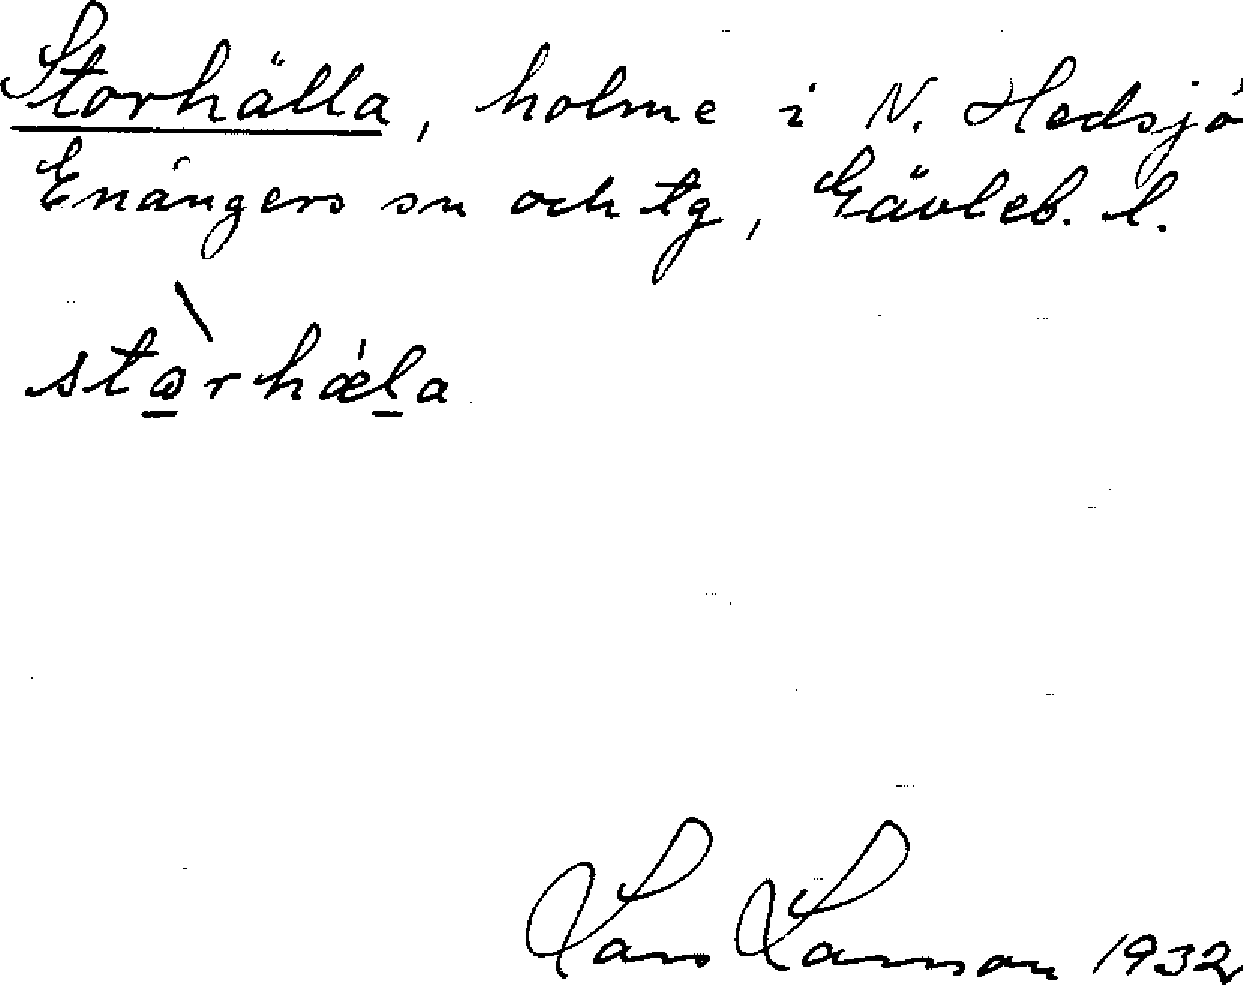 Storhälla, holme i N. Hedsjö
Enångers sn och tg, Gävleb. l.
stɷ̀rhǽla
Lars Larsson 1932